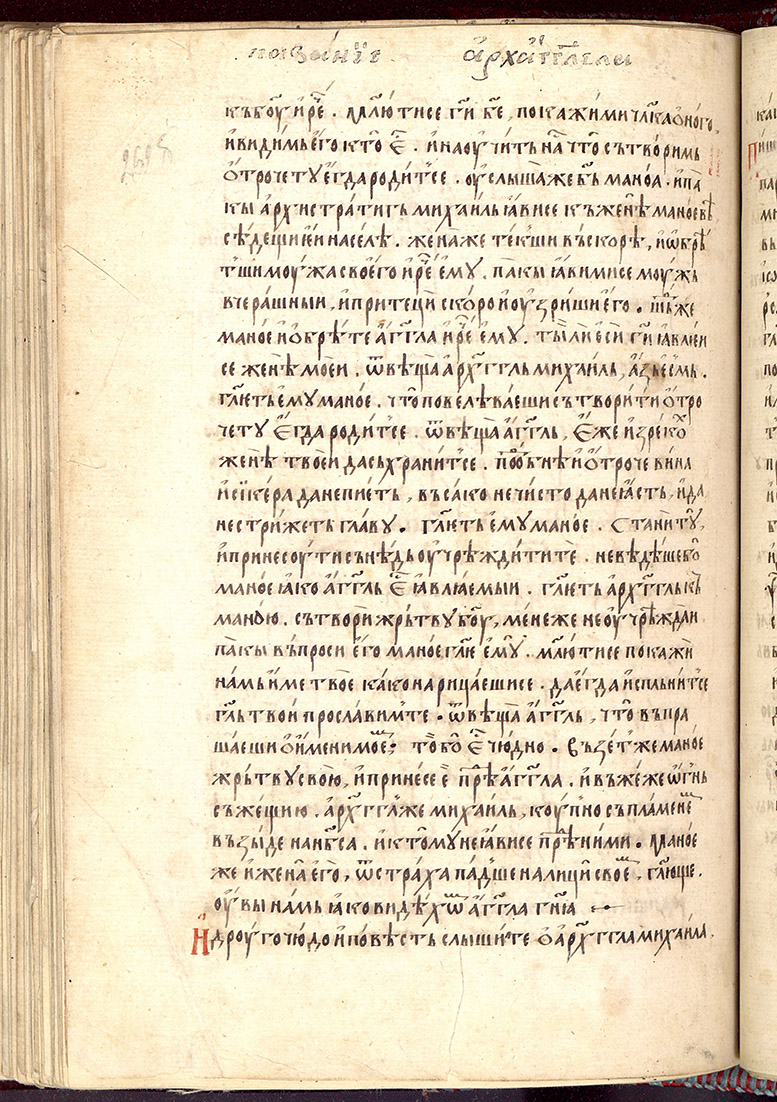 казанїе архагг҃лєлы
къ бо҃у и рⷱ҇е . Млю҃ тисе гд҃и бж҃е , покажи ми чл҃ка ѻного
и видимь ѥго кто ѥⷭ҇ . и наоучить нⷭ҇а что сътворимь
ѻтрочету ѥгда родит'се . оуслыша же бъ҃ маноа . и па
кы архистратигь михаиль ꙗвисе къ женѣ маноевѣ
сѣдещи ѥи на селѣ . жена же текши въскорѣ , и ѡбрѣ
тши моужа своѥго и рⷱ҇е ѥму . пакы ꙗви ми се моужь
вчерашныи , и притеци скоро и оузриши ѥго . шⷣь же
маноѥ и ѻбрѣте агг҃ла и рⷱ҇е ѥму . ты ли ѥси гд҃и ꙗвлѥи
се женѣ моѥи . ѿвѣща арх҃ггль михаиль , азь ѥсмь .
гл҃ѥть ѥму маноѥ . что повелѣваѥши сътворити ѻтро
чету ѥгда родит'се . ѿвѣща агг҃ль , ѥже изрекоⷯ
женѣ твоѥи да съхранит'се . поⷣбнѣ и ѻтроче вина
и сикера да не пиѥть , въсако нечисто да не ꙗсть , и да
не стрижеть главу . гл҃ѥть ѥму маноѥ . Стани ту ,
и принесоу ти сънѣдь оучрѣдити те . не вѣдѣше боⷡ
маноѥ ꙗко агг҃ль ѥⷭ҇ ꙗвлꙗѥмыи . гл҃ѥть арх҃ггль къ
маною . сътвори жрьтву бо҃у , мене же не оучрѣждаи
пакы въпроси ѥго маноѥ гл҃ѥ ѥму . млю҃ тисе покажи
намь име твоѥ како нарицаѥши се . да ѥгда испльнит'се
гл҃ь твои прославим те . ѿвѣща агг҃ль , что въпра
шаѥши ѻ имени моѥⷨ; то бо ѥⷭ҇ чюдно . Възет' же маноѥ
жрьтву свою , и принесе ѥ прѣⷣ агг҃ла . и въжеже ѡгнь
съжещи ю . арх҃ггл' же михаиль , коупно съ пламенеⷨ
възыде на нб҃са . и к томѹ не ꙗвисе прⷣѣ ними . Маноѥ
же и жена ѥго , ѿ страха пад'ше на лици своѥⷨ , гл҃юще .
оувы намь ꙗко видѣхѡⷨ агг҃ла гн҃ꙗ
И дроуго чюдо и повѣсть слышите ѻ арх҃ггла михаила .